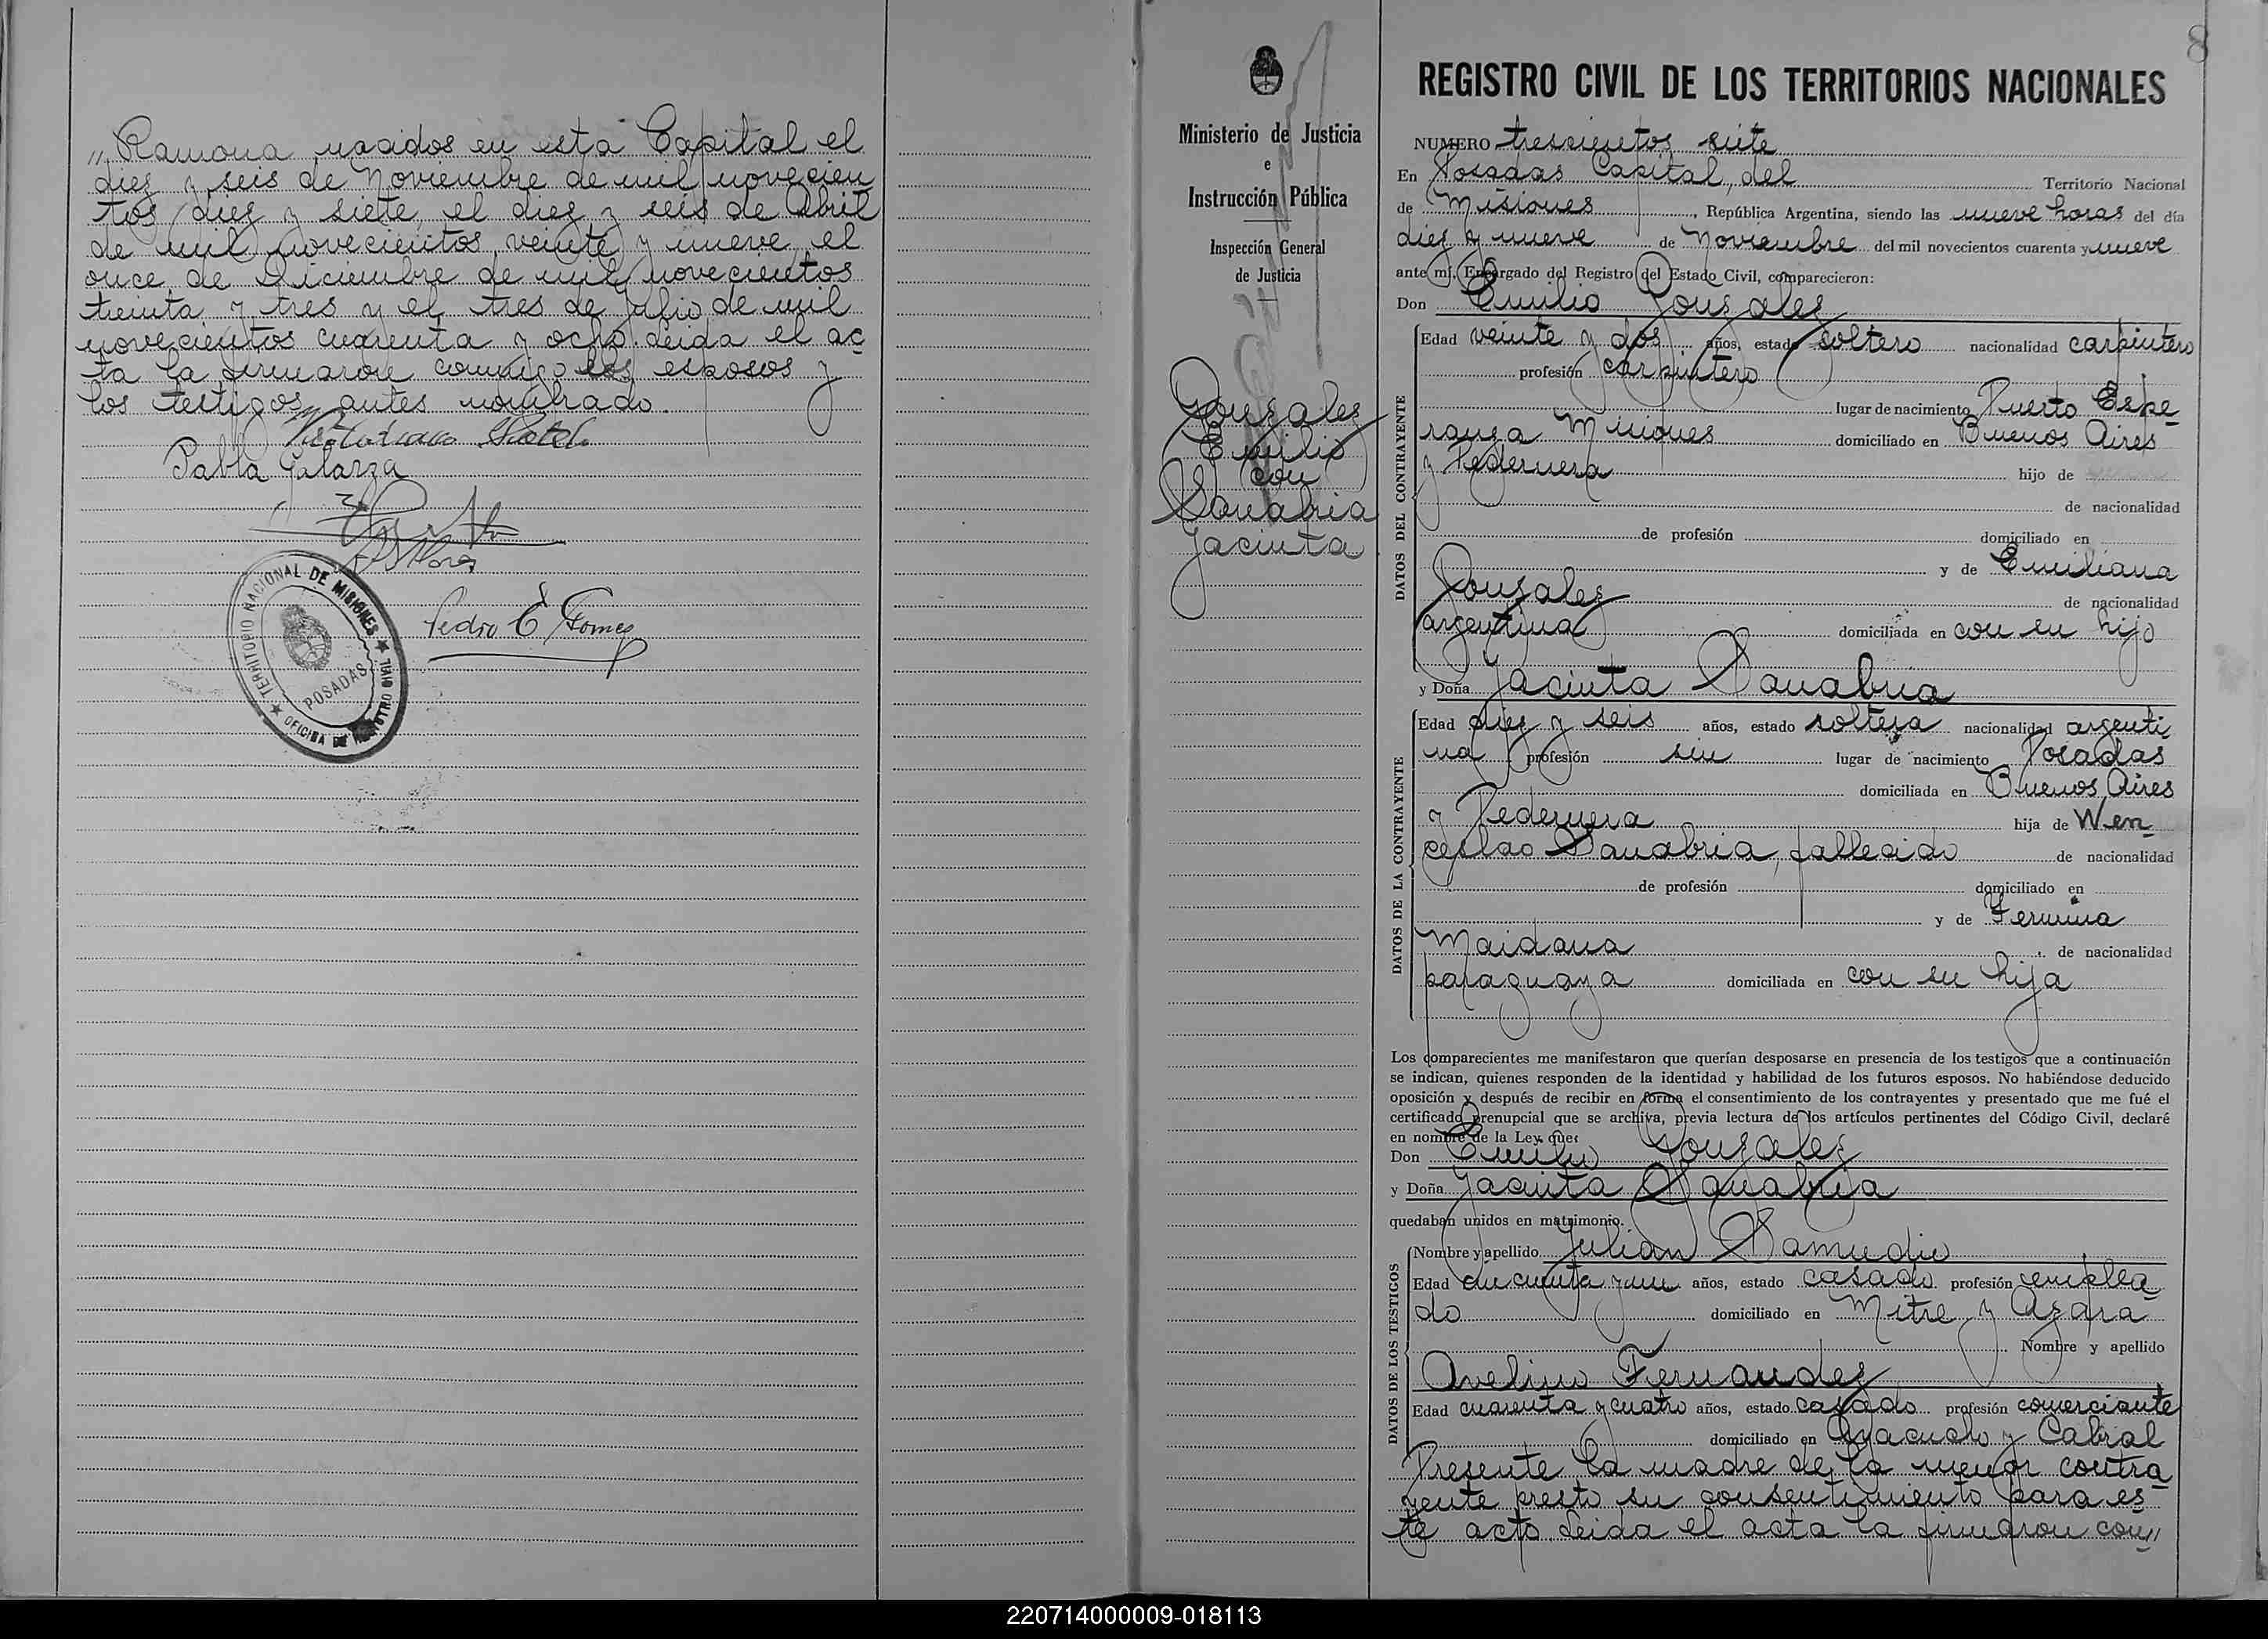 „Ramona nacidos en esta Capital el
diez y seis de Noviembre de mil novecien
tos diez y siete, el diez y seis de Abril
de mil novecientos veinte y nueve, el
once de Diciembre de mil novecientos
treinta y tres y el tres de Julio de mil
novecientos cuarenta y ocho. Leida el ac
ta la firmaron conmigo los esposos y
los testigos antes nombrado.
Pabla Galarza
Pedro E Gomez
TERRITORIO NACIONAL DE MISIONES
POSADAS
8
REGISTRO CIVIL DE LOS TERRITORIOS NACIONALES
Ministerio de Justicia
e
Instrucción Pública
Inspección General
de Justicia
Gonzalez
Emilio
con
Sanabria
Jacinta
NUMERO trescientos siete
En Posadas Capital, del Territorio Nacional
de Misiones, República Argentina, siendo las nueve horas del día
diez y nueve de Noviembre del mil novecientos cuarenta y nueve
ante mí, Encargado del Registro del Estado Civil, comparecieron:
Don Emilio Gonzalez
DATOS DEL CONTRAYENTE
Edad veinte y dos años, estado soltero nacionalidad carpintero
profesión carpintero
lugar de nacimiento Puerto Espe-
ranza Misiones domiciliado en Buenos Aires
y Pedernera hijo de
de nacionalidad
de profesión domiciliado en
y de Emiliana
Gonzalez de nacionalidad
argentina domiciliada en con su hijo
y Doña Jacinta Sanabria
DATOS DE LA CONTRAYENTE
Edad diez y seis años, estado soltera nacionalidad argenti
na profesión sin lugar de nacimiento Posadas
domiciliada en Buenos Aires
y Pedernera hija de Wen-
ceslao Sanabria, fallecido de nacionalidad
de profesión domiciliado en
y de Fermina
Maidana de nacionalidad
paraguaya domiciliada en con su hija
Los comparecientes me manifestaron que querían desposarse en presencia de los testigos que a continuación
se indican, quienes responden de la identidad y habilidad de los futuros esposos. No habiéndose deducido
oposición y después de recibir en forma el consentimiento de los contrayentes y presentado que me fué el
certificado prenupcial que se archiva, previa lectura de los artículos pertinentes del Código Civil, declaré
en nombre de la Ley, que:
Don Emilio Gonzalez
y Doña Jacinta Sanabria
quedaban unidos en matrimonio.
DATOS DE LOS TESTIGOS
Nombre y apellido Julian Samudio
Edad cincuenta y un años, estado casado profesión emplea-
do domiciliado en Mitre y Azara
Nombre y apellido
Avelino Fernandez
Edad cuarenta y cuatro años, estado casado profesión comerciante
domiciliado en Ayacucho y Cabral
Presente la madre de la menor contra
yente presto su consentimiento para es-
te acto. Leida el acta la firmaron con„
220714000009-018113